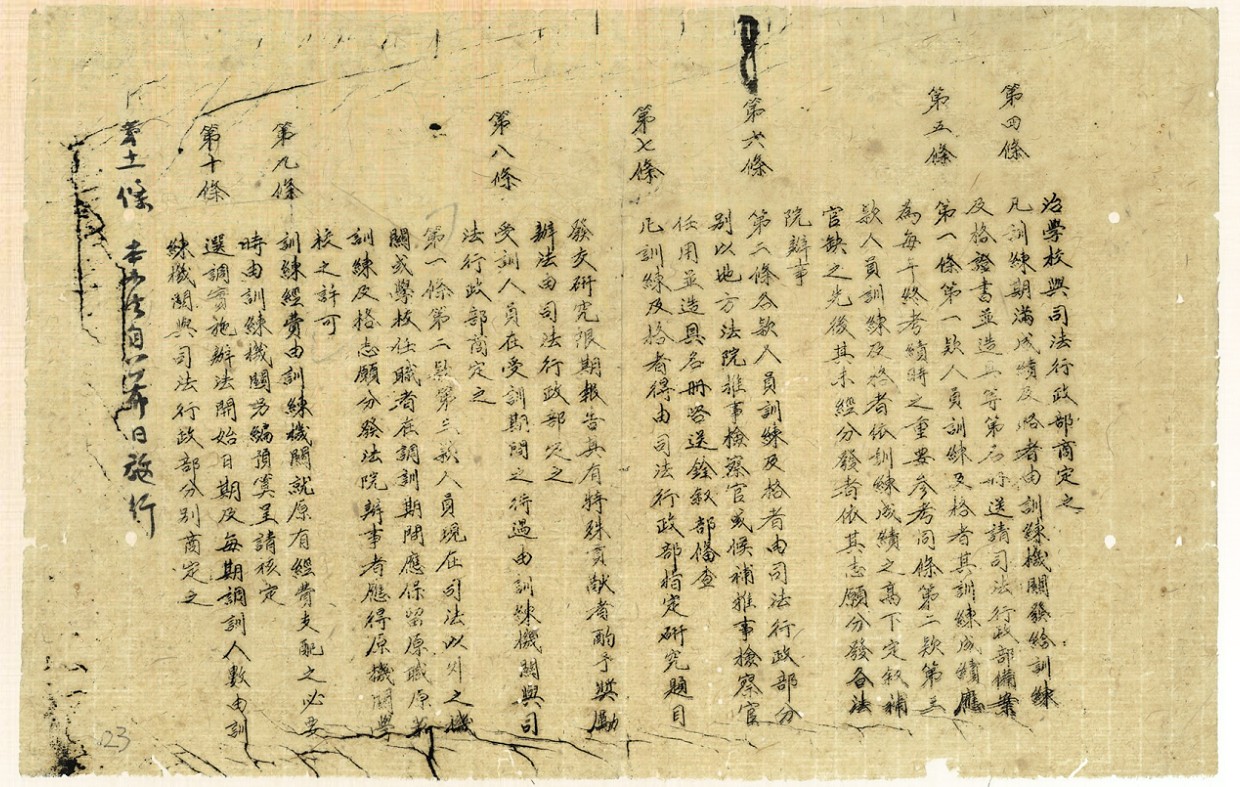 治學校與司法行政部商定之
第四條 凡訓練期滿成績及格者由訓練機關發給訓練
及格證書並造具等第名冊送請司法行政部備案
第五條 第一條第一款人員訓練及格者其訓練成績應
為每年終考績時之重要參考同條第二款第三
款人員訓練及格者依訓練成績之高下定敘補
官缺之先後其未經分發者依其志願分發各法
院辦事
第六條 第二條各款人員訓練及格者由司法行政部分
別以地方法院推事檢察官或候補推事檢察官
任用並造具名冊咨送銓敘部備查
第七條 凡訓練及格者得由司法行政部指定研究題目
發交研究限期報告其有特殊貢獻者酌予獎勵
辦法由司法行政部定之
第八條 受訓人員在受訓期間之待遇由訓練機關與司
法行政部商定之
第一條第二款第三款人員現在司法以外之機
關或學校任職者在調訓期間應保留原職原薪
訓練及格志願分發法院辦事者應得原機關學
校之許可
第九條 訓練經費由訓練機關就原有經費支配之必要
時由訓練機關另編預算呈請核定
第十條 選調實施辦法開始日期及每期調訓人數由訓
練機關與司法行政部分別商定之
第十一條 本辦法自公布日施行
23